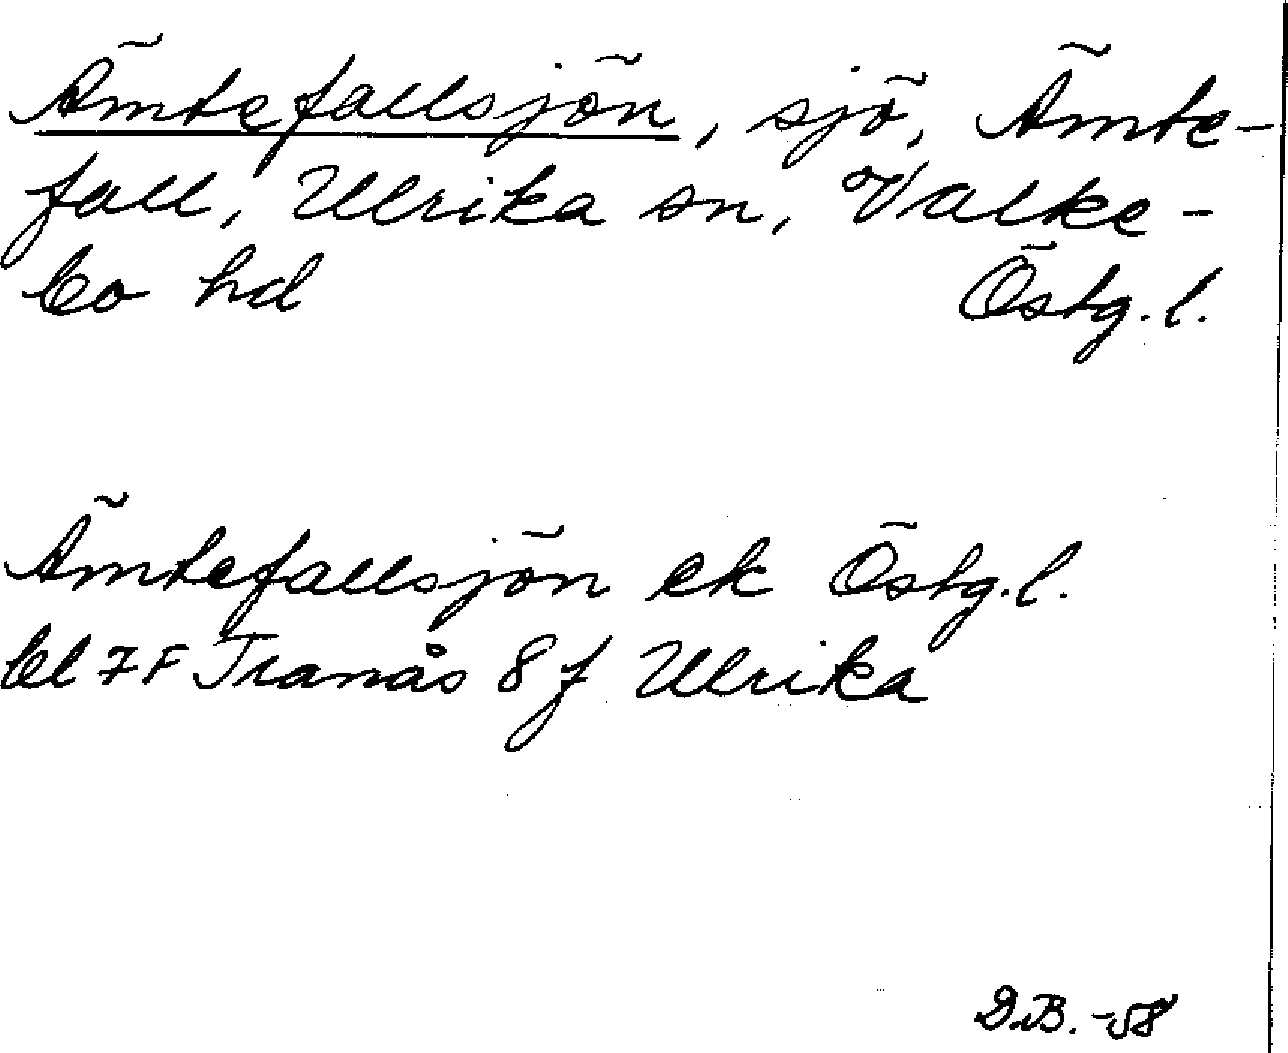 Ämtefallsjön, sjö, Ämte-
fall, Ulrika sn, Valke-
bo hd Östg.l.
Ämtefallsjön ek Östg.l.
bl 7F Tranås 8f Ulrika
D.B. -58